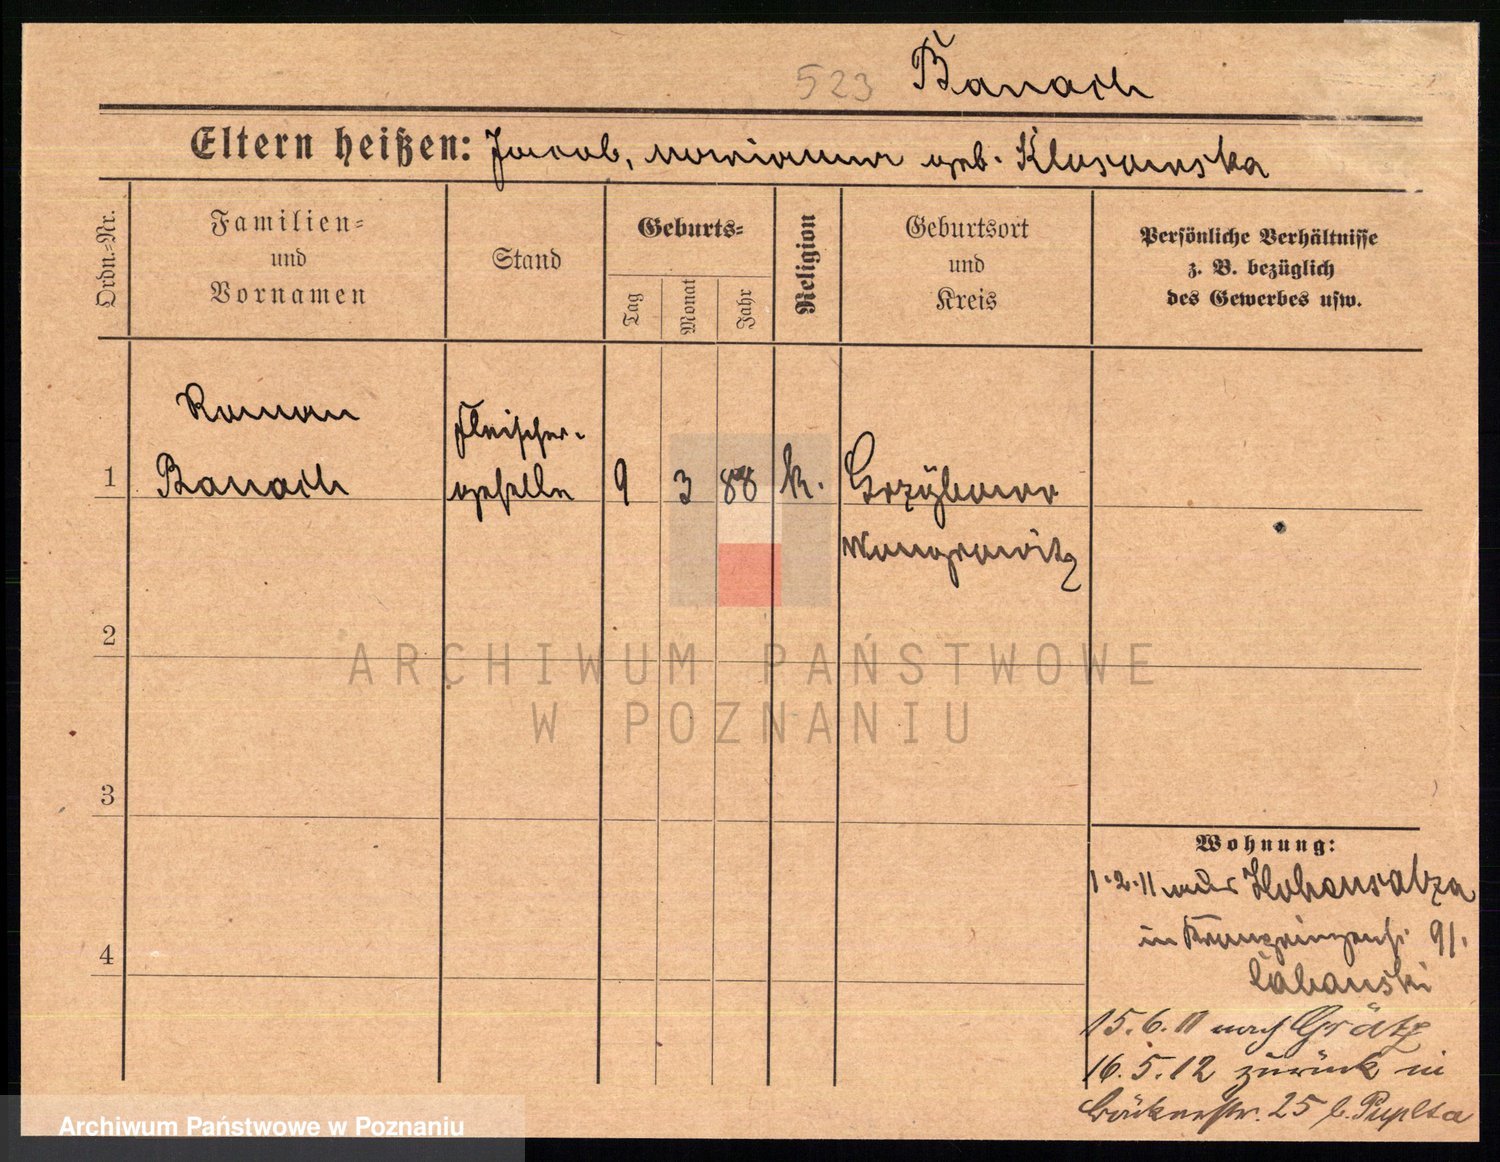 523 Banach
Eltern heißen: Jacob, Marianna geb. Klosowska
Ordn.-Nr.
Familien-
und
Vornamen
Stand
Geburts-
Tag
Monat
Jahr
Religion
Geburtsort
und
Kreis
Persönliche Verhältnisse
z. B. bezüglich
des Gewerbes usw.
Roman
Fleischer-
1 Banach geselle 9 3 88 k. Grzybowo
Wongrowitz
2
ARCHIWUM PAŃSTWOWE
W POZNANIU
3
Wohnung:
1.2.11 aus Hohensalza
in 91.
4
Labanski
15.6.11 nach Grätz
16.5.12 zurück in
Bäckerstr. 25 b.
Archiwum Państwowe w Poznaniu